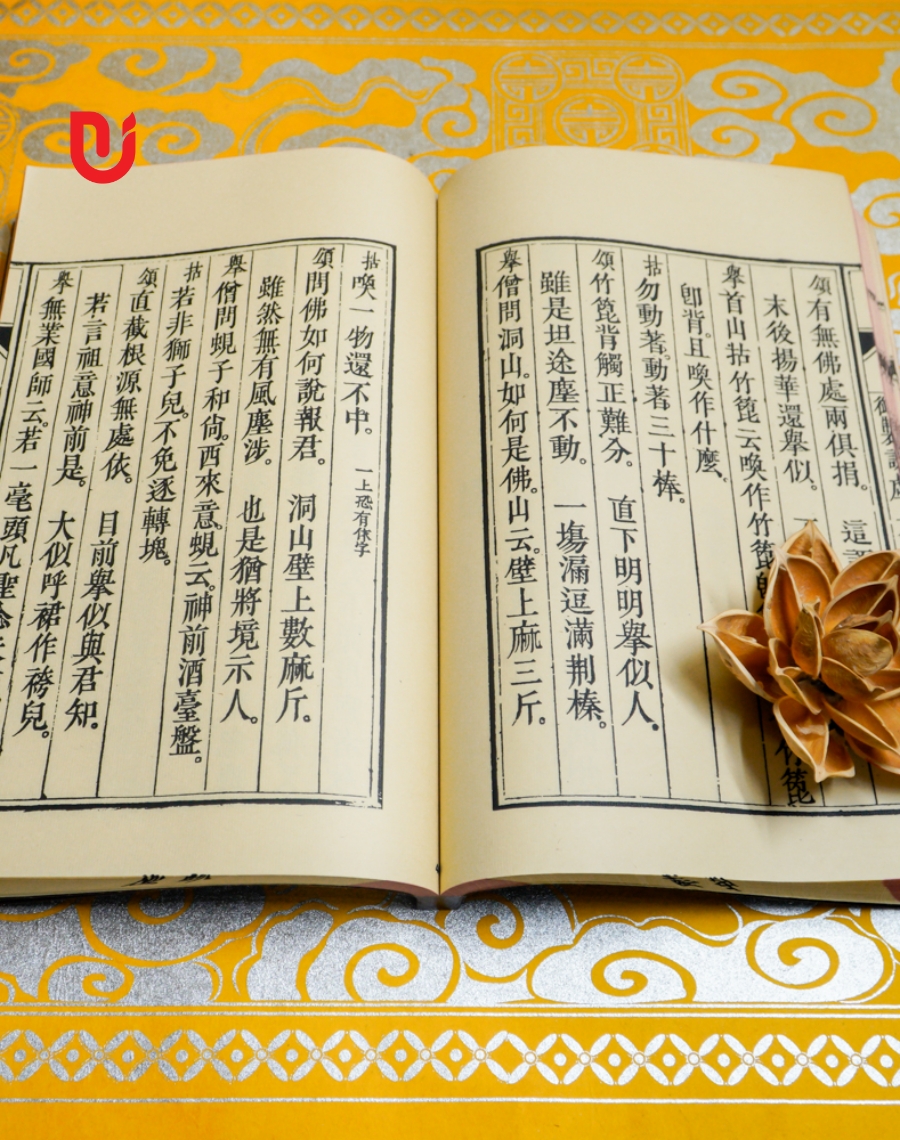 頌有無佛處兩俱捐。 這
末後揚華還舉似。
舉首山拈竹篦云喚作竹篦 竹篦
卽背。且喚作什麼。
拈勿動著。動著三十棒。
頌竹篦背觸正難分。 直下明明舉似人。
雖是坦途塵不動。 一塲漏逗滿荆榛。
舉僧問洞山。如何是佛。山云。壁上麻三斤。
拈喚一物還不中。 一上恐有休字
頌問佛如何說報君。 洞山壁上數麻斤。
雖然無有風塵涉。 也是猶將境示人。
舉僧問蜆子和尙。西來意。蜆云。神前酒臺盤。
拈若非獅子兒。不免逐轉塊。
頌直截根源無處依。 目前舉似與君知。
若言祖意神前是。 大似呼裙作袴兒。
舉無業國師云。若一毫頭凡聖念